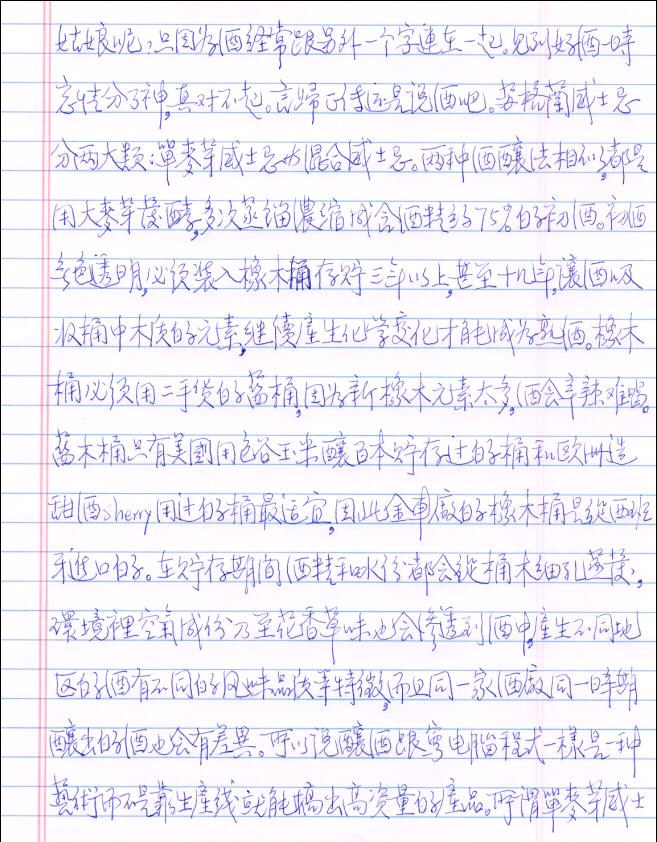 姑娘呢,只因為酒經常跟另外一个字連在一起。見到好酒一時
忘情分了神,真对不起。言歸正传还是说酒吧。苏格蘭威士忌
分两大類:單麥芽威士忌及混合威士忌。两种酒釀法相似,都是
用大麥芽發酵,多次蒸餾濃缩成含酒精约75%的初酒。初酒
無色透明,必须装入橡木桶存贮三年以上,甚至十几年,讓酒吸
收桶中木质的元素,継續產生化学变化才能成为熟酒。橡木
桶必须用二手货的舊桶,因为新橡木元素太多,酒会辛辣难喝。
舊木桶只有美國用包谷玉米釀百本贮存过的桶和欧洲造
甜酒sherry用过的桶最适宜,因此金車廠的橡木桶是從西班
牙進口的。在贮存期间酒精和水份都会從桶木细孔蒸發,
環境裡空氣成份乃至花香草味也会滲透到酒中,產生不同地
区的酒有不同的风味品质等特徵,而且同一家酒廠同一時期
釀出的酒也会有差異。所以说釀酒跟寫电腦程式一樣是一种
藝術而不是靠生產线就能搞出高资量的產品。所謂單麥芽威士